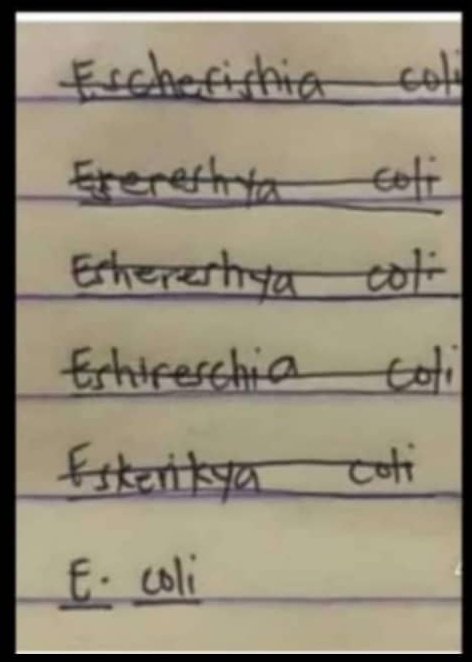 Escherishia coli
Esereshya coli
Eshereshya coli
Eshireschia coli
Eskerikya coli
E. coli